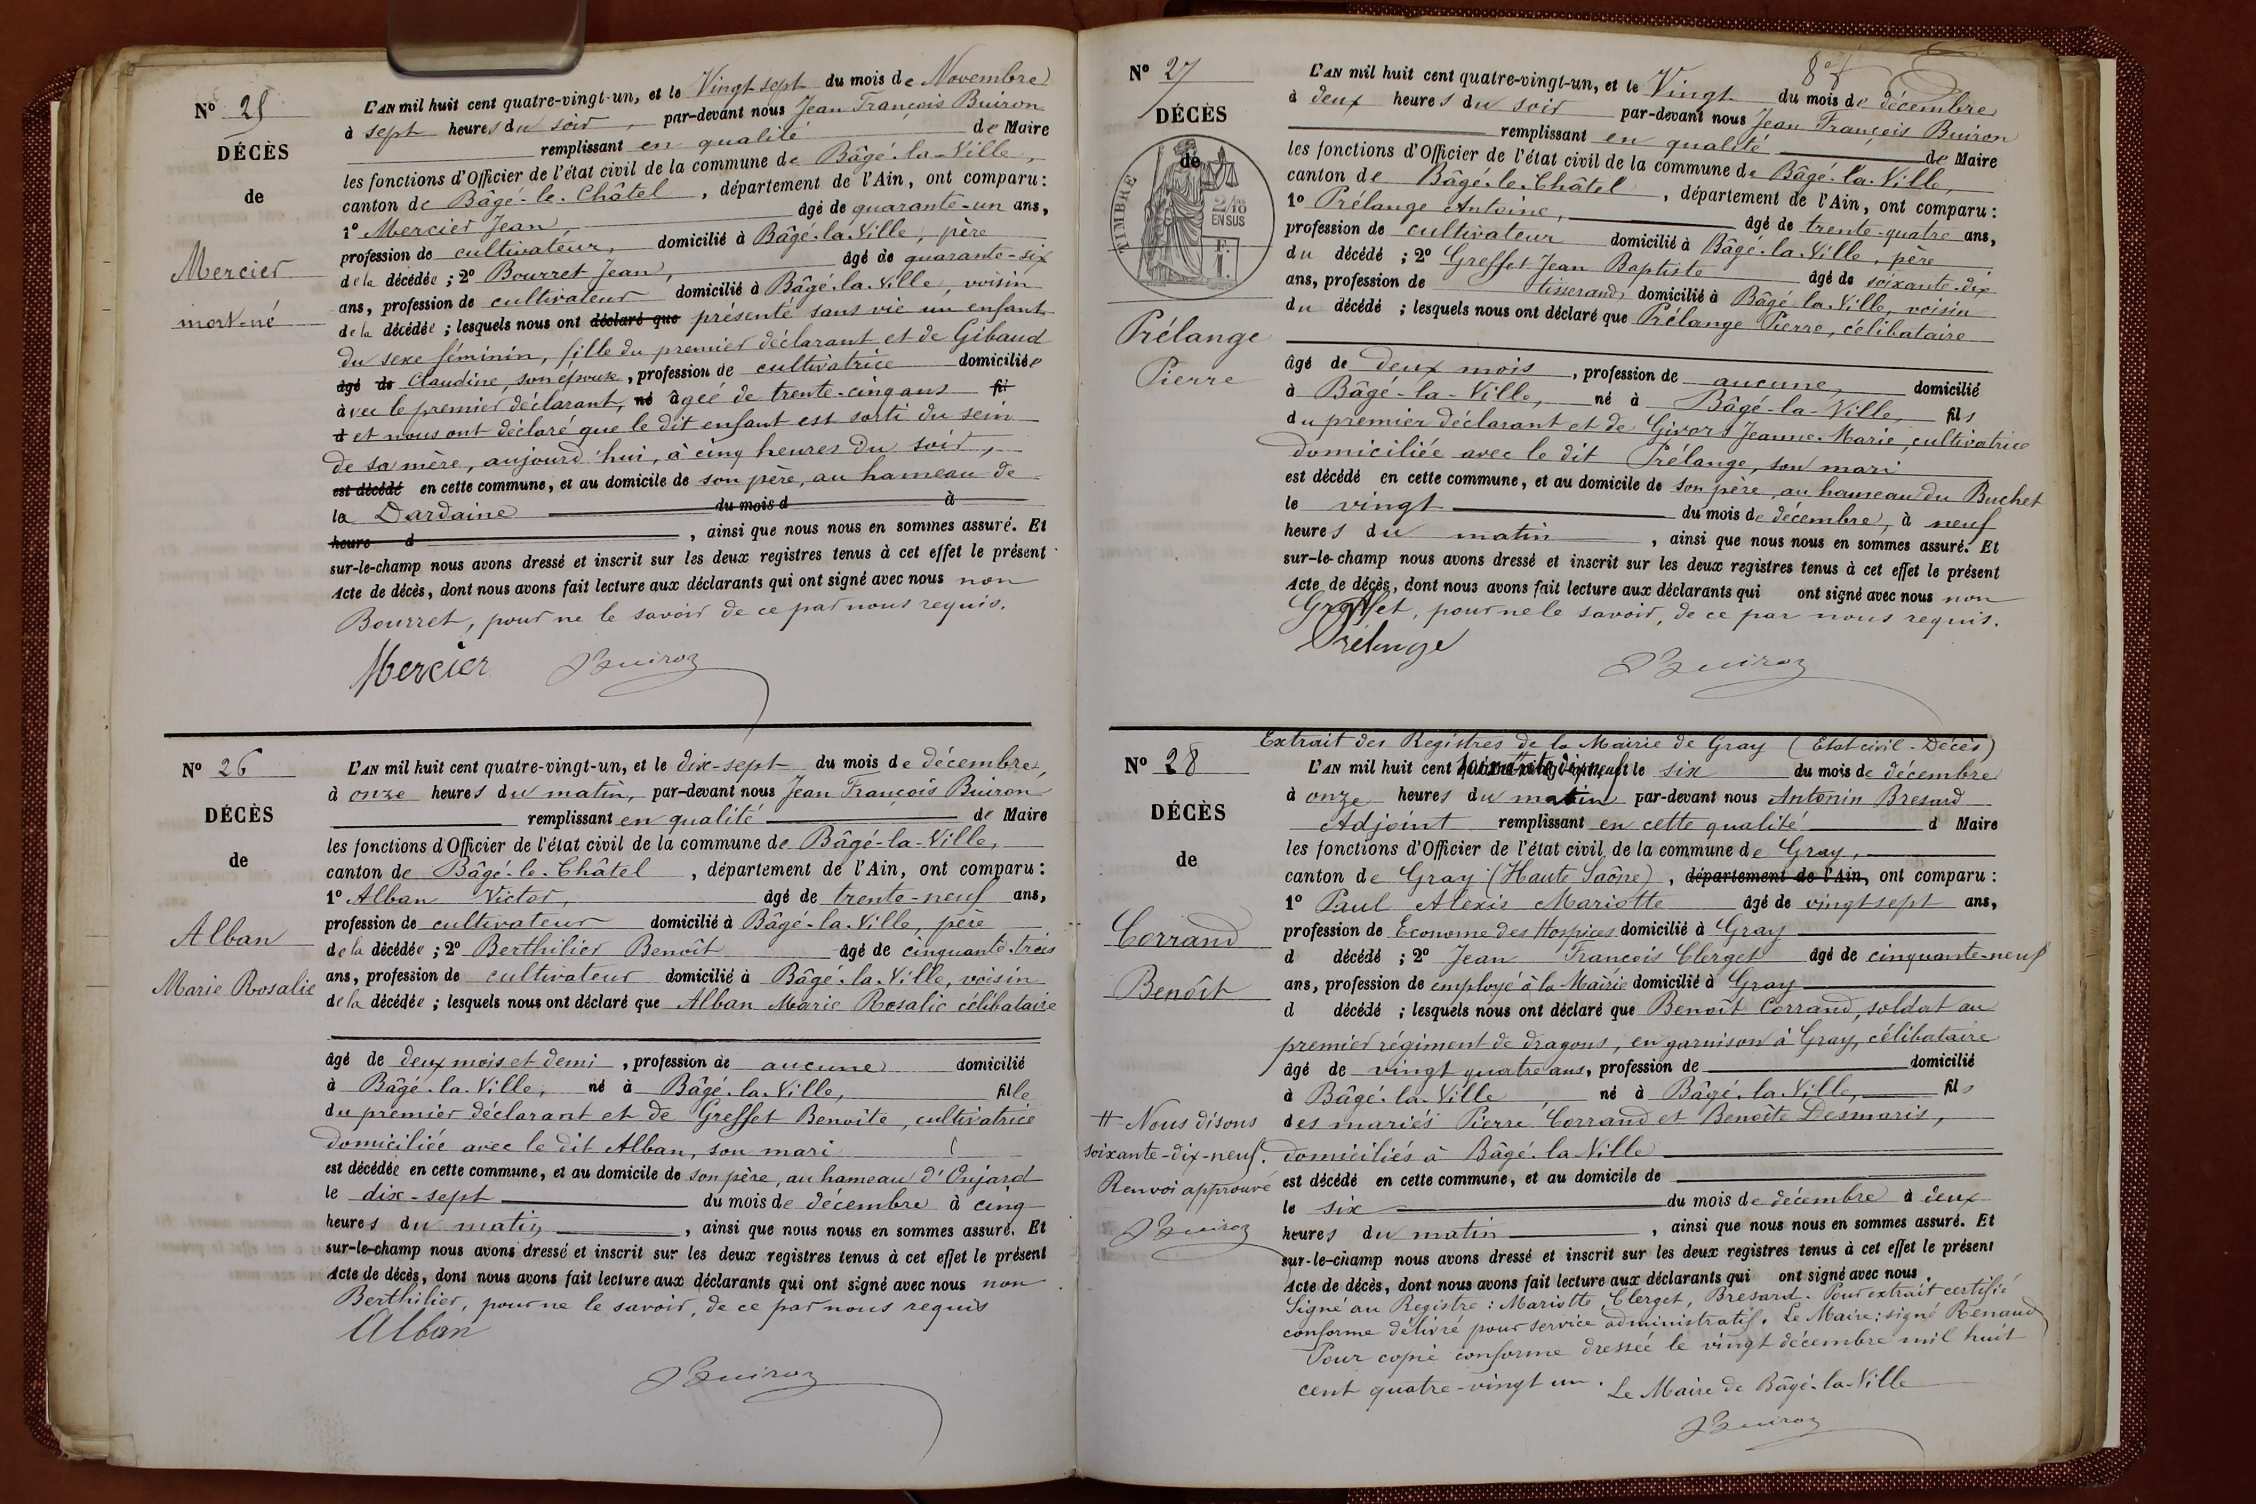 N° 25
DÉCÈS
de
Mercier
mort-né
L'AN mil huit cent quatre-vingt-un, et le Vingt sept du mois de Novembre
à sept heures du soir, par-devant nous Jean François Buiron
remplissant en qualité de Maire
les fonctions d'Officier de l'état civil de la commune de Bâgé-la-Ville,
canton de Bâgé-le-Châtel, département de l'Ain, ont comparu:
1° Mercier Jean, âgé de quarante-un ans,
profession de cultivateur, domicilié à Bâgé-la-Ville, père
de la décédée; 2° Bourret Jean, âgé de quarante-six
ans, profession de cultivateur domicilié à Bâgé-la-Ville, voisin
de la décédée; lesquels nous ont déclaré que présenté sans vie un enfant
du sexe féminin, fille du premier déclarant et de Gibaud
âgé de Claudine, son épouse, profession de cultivatrice domiciliée
avec le premier déclarant, né âgée de trente-cinq ans fil
d et nous ont déclaré que le dit enfant est sorti du sein
de sa mère, aujourd'hui, à cinq heures du soir,
est décédé en cette commune, et au domicile de son père, au hameau de
la Dardaine du mois d à
heure d, ainsi que nous nous en sommes assuré. Et
sur-le-champ nous avons dressé et inscrit sur les deux registres tenus à cet effet le présent
Acte de décès, dont nous avons fait lecture aux déclarants qui ont signé avec nous non
Bourret, pour ne le savoir de ce par nous requis.
Mercier JBuiron
N° 26
DÉCÈS
de
Alban
Marie Rosalie
L'AN mil huit cent quatre-vingt-un, et le dix-sept du mois de décembre,
à onze heures du matin, par-devant nous Jean François Buiron
remplissant en qualité de Maire
les fonctions d'Officier de l'état civil de la commune de Bâgé-la-Ville,
canton de Bâgé-le-Châtel, département de l'Ain, ont comparu:
1° Alban Victor, âgé de trente-neuf ans,
profession de cultivateur domicilié à Bâgé-la-Ville, père
de la décédée; 2° Berthilier Benoît âgé de cinquante-trois
ans, profession de cultivateur domicilié à Bâgé-la-Ville, voisin
de la décédée; lesquels nous ont déclaré que Alban Marie Rosalie célibataire
âgé de deux mois et demi, profession de aucune domicilié
à Bâgé-la-Ville, né à Bâgé-la-Ville, fille
du premier déclarant et de Greffet Benoîte, cultivatrice
domiciliée avec le dit Alban, son mari
est décédée en cette commune, et au domicile de son père, au hameau d'Onjard
le dix-sept du mois de décembre à cinq
heures du matin, ainsi que nous nous en sommes assuré. Et
sur-le-champ nous avons dressé et inscrit sur les deux registres tenus à cet effet le présent
Acte de décès, dont nous avons fait lecture aux déclarants qui ont signé avec nous non
Berthilier, pour ne le savoir, de ce par nous requis
Alban
JBuiron
N° 27
DÉCÈS
de
TIMBRE
2/10
EN SUS
Prélange
Pierre
L'AN mil huit cent quatre-vingt-un, et le Vingt du mois de décembre
à deux heures du soir par-devant nous Jean François Buiron
remplissant en qualité de Maire
les fonctions d'Officier de l'état civil de la commune de Bâgé-la-Ville,
canton de Bâgé-le-Châtel, département de l'Ain, ont comparu:
1° Prélange Antoine, âgé de trente-quatre ans,
profession de cultivateur domicilié à Bâgé-la-Ville, père
du décédé; 2° Greffet Jean Baptiste âgé de soixante-dix
ans, profession de tisserand, domicilié à Bâgé-la-Ville, voisin
du décédé; lesquels nous ont déclaré que Prélange Pierre, célibataire
âgé de deux mois, profession de aucune, domicilié
à Bâgé-la-Ville, né à Bâgé-la-Ville, fils
du premier déclarant et de Givors Jeanne-Marie, cultivatrice
domiciliée avec le dit Prélange, son mari
est décédé en cette commune, et au domicile de son père, au hameau du Buchet
le vingt du mois de décembre, à neuf
heures du matin, ainsi que nous nous en sommes assuré. Et
sur-le-champ nous avons dressé et inscrit sur les deux registres tenus à cet effet le présent
Acte de décès, dont nous avons fait lecture aux déclarants qui ont signé avec nous non
Greffet, pour ne le savoir, de ce par nous requis.
Prelange
JBuiron
N° 28
DÉCÈS
de
Corrand
Benoît
# Nous disons
soixante-dix-neuf.
Renvoi approuvé
JBuiron
Extrait des Registres de la Mairie de Gray (Etat civil - Décès)
L'AN mil huit cent soixante dix neuf et le six du mois de décembre
à onze heures du matin par-devant nous Antonin Bresard
Adjoint remplissant en cette qualité d Maire
les fonctions d'Officier de l'état civil de la commune de Gray,
canton de Gray (Haute Saône), département de l'Ain, ont comparu:
1° Paul Alexis Mariotte âgé de vingt sept ans,
profession de Econome des Hospices domicilié à Gray
d décédé; 2° Jean François Clerget âgé de cinquante-neuf
ans, profession de employé à la Mairie domicilié à Gray
d décédé; lesquels nous ont déclaré que Benoît Corrand, soldat au
premier régiment de dragons, en garnison à Gray, célibataire
âgé de vingt quatre ans, profession de domicilié
à Bâgé-la-Ville, né à Bâgé-la-Ville, fils
des mariés Pierre Corrand et Benoîte Desmaris,
domiciliés à Bâgé-la-Ville
est décédé en cette commune, et au domicile de
le six du mois de décembre à deux
heures du matin, ainsi que nous nous en sommes assuré. Et
sur-le-champ nous avons dressé et inscrit sur les deux registres tenus à cet effet le présent
Acte de décès, dont nous avons fait lecture aux déclarants qui ont signé avec nous.
Signé au Registre: Mariotte, Clerget, Bresard. Pour extrait certifié
conforme délivré pour service administratif. Le Maire: signé Renaud
Pour copie conforme dressée le vingt décembre mil huit
cent quatre-vingt un. Le Maire de Bâgé-la-Ville
JBuiron